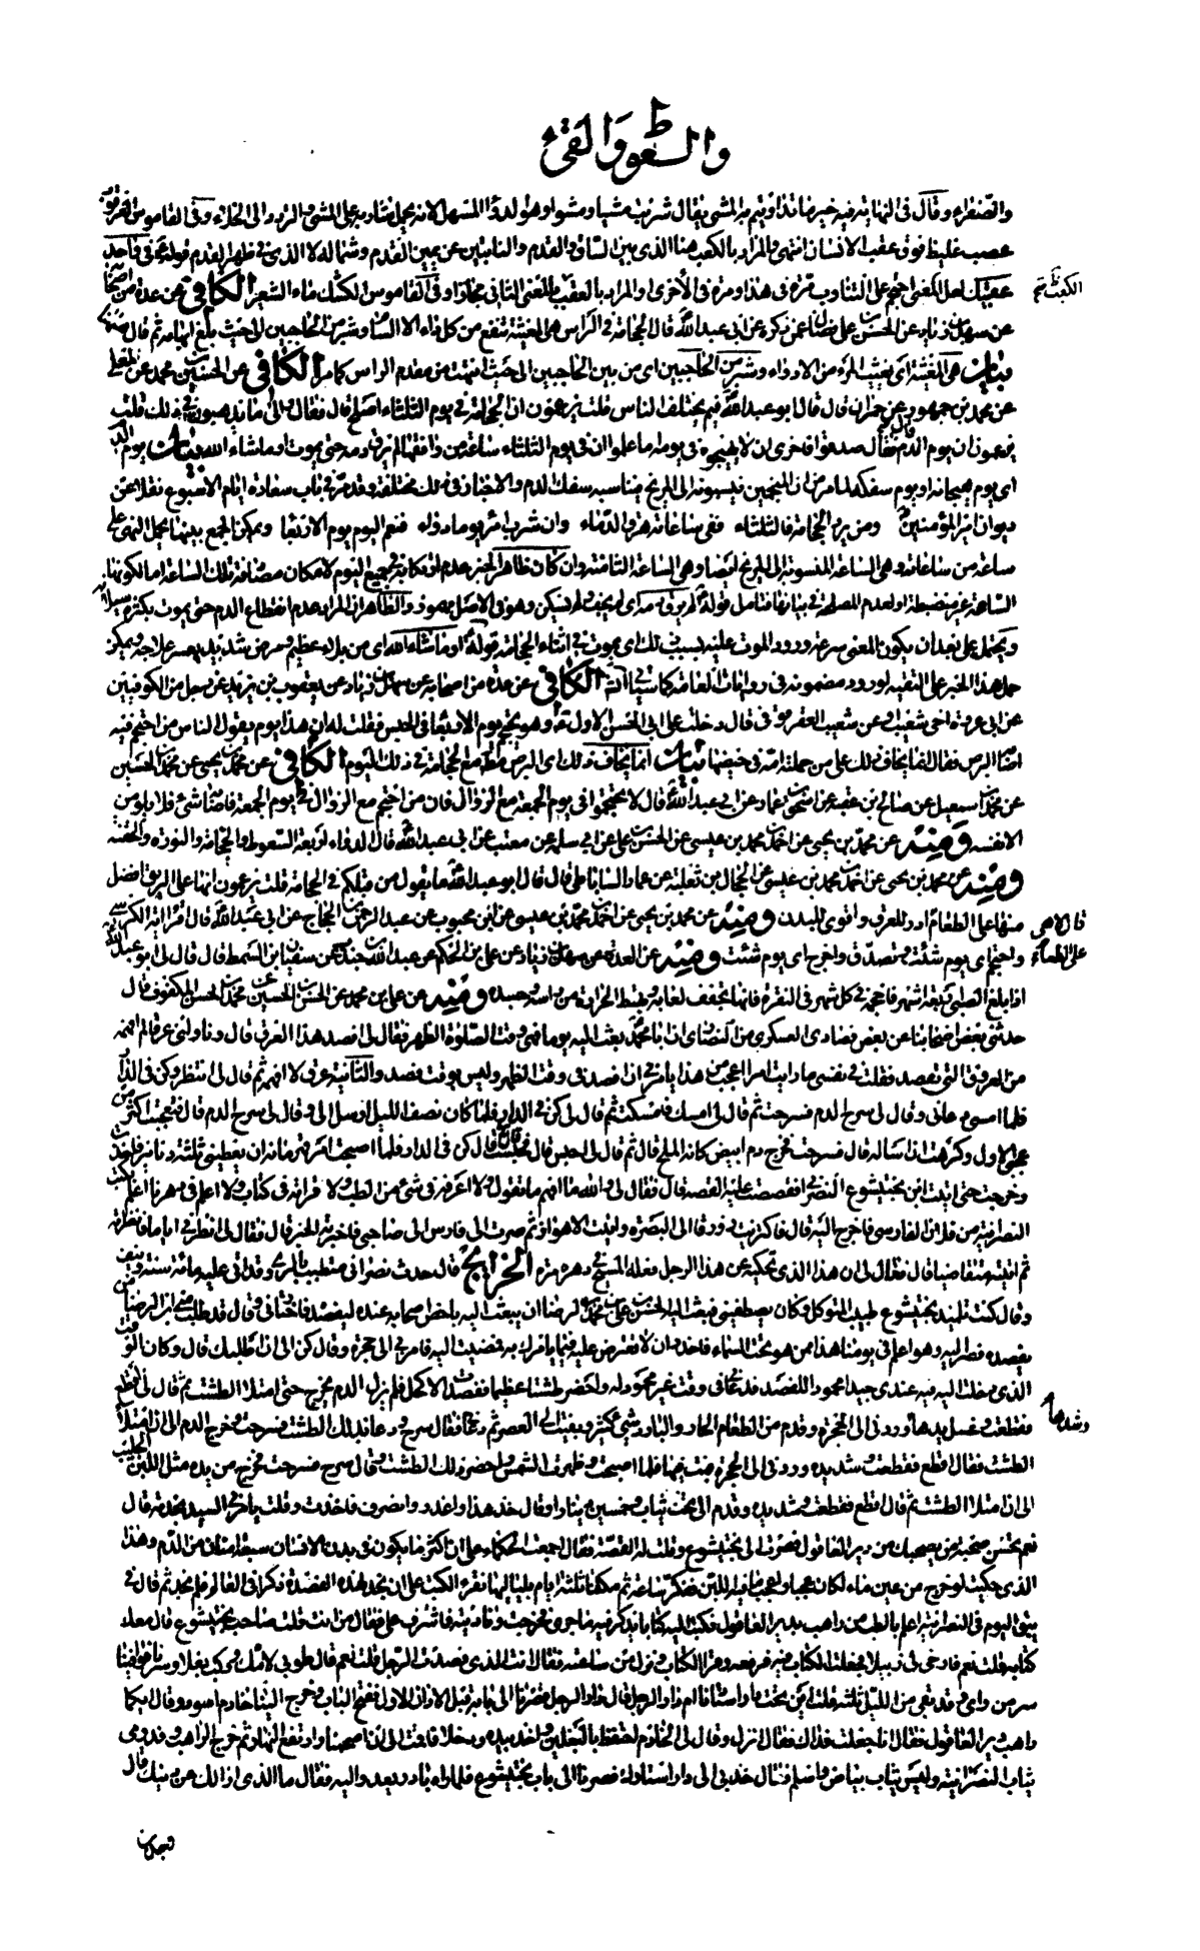 والسعوط والقيء
والصفراء وقال في النهاية فيه خير ما تداويتم به المشي يقال شربت مشيا ومشوا وهو الدواء المسهل لانه يحمل شاربه على المشي والتردد الى الخلاء وفي القاموس العرقوب
عصب غليظ فوق عقب الانسان انتهى والمراد بالكعب هنا الذي بين الساق والقدم والناتيين عن يمين القدم وشماله لا الذي في ظهر القدم قوله في واحد
عقبيك لعل المعنى احتجم على التناوب مرة في هذا ومرة في الأخرى او المراد بالعقب المعنى الثاني مجازا وفي القاموس الكافي عن عدة من اصحابنا
عن سهل بن زياد عن الحسن بن علي بن فضال عمن ذكره عن ابي عبد الله قال الحجامة في الراس هي المغيثة تنفع من كل داء الا السام وشبر من الحاجبين الى حيث بلغ ابهامه ثم قال ههنا
بيان هي المغيثة اي تغيث المرء من الادواء وشبر من الحاجبين اي من بين الحاجبين الى حيث انتهت من مقدم الراس كما مر الكافي عن الحسين بن محمد عن معلى
عن محمد بن جمهور عن حمران قال قال ابو عبد الله فيم يختلف الناس قلت يزعمون ان الحجامة في يوم الثلثاء اصلح قال فقال والى ما يذهبون في ذلك قلت
يزعمون ان يوم الدم قال فقال صدقوا فاحرى ان لا يهيجوه في يومه اما علموا ان في يوم الثلثاء ساعة من وافقها لم يرق دمه حتى يموت او ما شاء الله بيان يوم الدم
اي يوم هيجانه او يوم سفكه لما مر من ان المنجمين ينسبونه الى المريخ فيناسبه سفك الدم والاخبار في ذلك مختلفة وقد مر في باب سعادة ايام الاسبوع نقلا عن
ديوان امير المؤمنين ومن يرد الحجامة فالثلثاء ففي ساعاته هرق الدماء وان شرب امرء يوما دواء فنعم اليوم يوم الاربعاء ويمكن الجمع بينهما بحمل النهي على
ساعة من ساعاته وهي الساعة المنسوبة الى المريخ ايضا وهي الساعة الثامنة وان كان ظاهر الخبر عدم ارتكابه في جميع اليوم لامكان مصادفة تلك الساعة اما لكون تلك
الساعة غير منضبطة او لعدم المصلحة في بيانها فتامل قوله لم يرق دمه اي لم يجف ولم يسكن وهو في الاصل مهموز والظاهر ان المراد عدم انقطاع الدم حتى يموت بكثرة سيلانه
ويحتمل على بعد ان يكون المعنى سرعة ورود الموت عليه بسبب ذلك اي يموت في اثناء الحجامة قوله او ما شاء الله اي من بلاء عظيم ومرض شديد يعسر علاجه ويمكن
حمل هذا الخبر على التقية لورود مضمونه في روايات العامة كما سياتي الكافي عن عدة من اصحابه عن سهل بن زياد عن يعقوب بن يزيد عن رجل من الكوفيين
عن ابي عروة اخي شعيب او عن شعيب العقرقوفي قال دخلت على ابي الحسن الاول وهو يحتجم يوم الاربعاء في الحبس فقلت له ان هذا يوم يقول الناس من احتجم فيه
اصابه البرص فقال انما يخاف ذلك على من حملته امه في حيضها بيان انما يخاف ذلك اي البرص مطلقا او مع الحجامة في ذلك اليوم الكافي عن محمد بن يحيى عن محمد بن الحسين
عن محمد بن اسمعيل عن صالح بن عقبة عن اسحق بن عمار عن ابي عبد الله قال لا تحتجموا في يوم الجمعة مع الزوال فان من احتجم مع الزوال في يوم الجمعة فاصابه شيء فلا يلومن
الا نفسه ومنه عن محمد بن يحيى عن احمد بن محمد بن عيسى عن الحسن بن علي عن ابي سلمة عن معتب عن ابي عبد الله قال الدواء اربعة السعوط والحجامة والنورة والحقنة
ومنه عن محمد بن يحيى عن احمد بن محمد بن عيسى عن الحجال بن ثعلبة عن عمار الساباطي قال قال ابو عبد الله ما يقول من قبلكم في الحجامة قلت يزعمون انها على الريق افضل
منها على الطعام قال لا هي على الطعام ادر للعرق واقوى للبدن ومنه عن محمد بن يحيى عن احمد بن محمد بن عيسى عن ابن محبوب عن عبد الرحمن بن الحجاج عن ابي عبد الله قال اقرا اية الكرسي
واحتجم اي يوم شئت وتصدق واخرج اي يوم شئت ومنه عن العدة عن سهل بن زياد عن علي بن الحكم عن عبد الله بن جندب عن سفيان بن السمط قال قال لي ابو عبد الله
اذا بلغ الصبي اربعة اشهر فاحجمه في كل شهر في النقرة فانها تجفف لعابه وتهبط الحرارة من راسه وجسده ومنه عن علي بن محمد عن الحسن بن الحسين عن محمد بن الحسن المكفوف قال
حدثني بعض اصحابنا عن بعض فصادي العسكر من النصارى ان ابا محمد بعث اليه يوما في وقت الصلوة الظهر فقال لي افصد هذا العرق قال وناولني عرقا لم افهمه
من العروق التي تفصد فقلت في نفسي ما رايت امرا اعجب من هذا يامرني ان افصد في وقت الظهر وليس بوقت فصد والثانية عرق لا افهمه ثم قال لي انتظر وكن في الدار
فلما امسى دعاني وقال لي سرح الدم فسرحت ثم قال لي امسك فامسكت ثم قال لي كن في الدار فلما كان نصف الليل ارسل الي وقال لي سرح الدم قال فتعجبت اكثر من
عجبي الاول وكرهت ان اساله قال فسرحت فخرج دم ابيض كانه الملح قال ثم قال لي احبس قال فحبست قال كن في الدار فلما اصبحت امر قهرمانه ان يعطيني ثلثة دنانير فاخذت
وخرجت حتى اتيت ابن بختيشوع النصراني فقصصت عليه القصة قال فقال لي والله ما افهم ما تقول ولا اعرفه في شيء من الطب ولا قراته في كتاب ولا اعلم في دهرنا اعلم بكتب
النصرانية من فلان الفارسي فاخرج اليه قال فاكتريت زورقا الى البصرة واتيت الاهواز ثم صرت الى فارس الى صاحبي فاخبرته الخبر قال فقال لي انظرني اياما فانظرته
ثم اتيته متقاضيا قال فقال لي ان هذا الذي تحكيه عن هذا الرجل فعله المسيح في دهره مرة الخرايج قال حدث نصراني متطبب بالري وقد اتى عليه مائة سنة ونيف
وقال كنت تلميذ بختيشوع طبيب المتوكل وكان يصطفيني فبعث اليه الحسن بن علي بن محمد بن الرضا ان يبعث اليه باخص اصحابه عنده ليفصده فاختارني وقال قد طلب مني ابن الرضا من
يفصده فصر اليه وهو اعلم في يومنا هذا ممن هو تحت السماء فاحذر ان لا تعترض عليه فيما يامرك به فمضيت اليه فامر بي الى حجرة وقال كن الى ان اطلبك قال وكان الوقت
الذي دخلت اليه فيه عندي جيدا محمودا للفصد فدعاني في وقت غير محمود له واحضر طشتا عظيما ففصدت الاكحل فلم يزل الدم يخرج حتى امتلا الطشت ثم قال لي اقطع
فقطعت وغسل يده وشدها وردني الى الحجرة وقدم من الطعام الحار والبارد شيء كثير وبقيت الى العصر ثم دعاني فقال سرح ودعا بذلك الطشت فسرحت وخرج الدم الى ان امتلا
الطشت فقال اقطع فقطعت وشد يده وردني الى الحجرة فبت فيها فلما اصبحت وظهرت الشمس دعاني واحضر ذلك الطشت وقال سرح فسرحت فخرج من يده مثل اللبن الحليب
الى ان امتلا الطشت ثم قال اقطع فقطعت وشد يده وقدم الى تخت ثياب وخمسين دينارا وقال خذ هذا واعذر وانصرف فاخذت وقلت يامرني السيد بخدمة قال
نعم تحسن صحبة من يصحبك من دير العاقول فصرت الى بختيشوع وقلت له القصة فقال اجمعت الحكماء على ان اكثر ما يكون في بدن الانسان سبعة امنان من الدم وهذا
الذي حكيت لو خرج من عين ماء لكان عجبا واعجب ما فيه اللبن ففكر ساعة ثم مكثنا ثلثة ايام بلياليها نقرء الكتب على ان نجد لهذه الفصدة ذكرا في العالم فلم نجد ثم قال لم
يبق اليوم في النصرانية اعلم بالطب من راهب بدير العاقول فكتب اليه كتابا يذكر فيه ما جرى فخرجت وناديته فاشرف علي فقال من انت قلت صاحب بختيشوع قال معك
كتابه قلت نعم فارخى لي زبيلا فجعلت الكتاب فيه فرفعه وقرا الكتاب ونزل من ساعته فقال انت الذي فصدت الرجل قلت نعم قال طوبى لامك وركب بغلا وسرنا فوافينا
سر من راى وقد بقي من الليل ثلثه قلت اين تحب دار استاذنا ام دار الرجل قال دار الرجل فصرنا الى بابه قبل الاذان الاول ففتح الباب وخرج الينا خادم اسود وقال ايكما
راهب دير العاقول فقال انا جعلت فداك فقال انزل وقال لي الخادم احتفظ بالبغلين واخذ بيده ودخلا فاقمت الى ان اصبحنا وارتفع النهار ثم خرج الراهب وقد رمى
ثياب النصرانية ولبس ثياب بياض واسلم فقال خذ بي الى دار استاذك فصرنا الى باب بختيشوع فلما راه بادر يعدو اليه فقال ما الذي ازالك عن دينك قال
وجدت